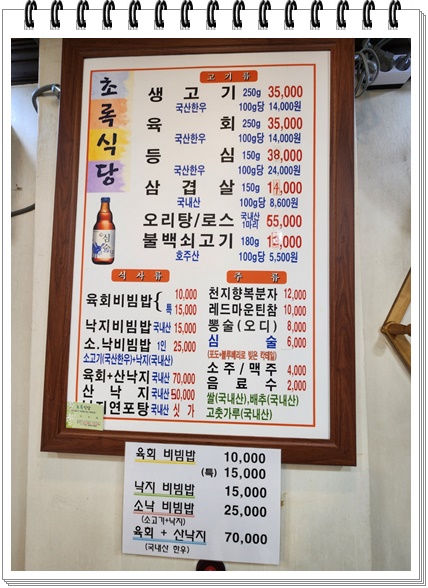 초록식당
고기류
생고기 250g 35,000
국산한우 100g당 14,000원
육회 250g 35,000
국산한우 100g당 14,000원
등심 150g 38,000
국산한우 100g당 24,000원
삼겹살 150g 14,000
국내산 100g당 8,600원
오리탕/로스 국내산 1마리 55,000
불백쇠고기 180g
호주산 100g당 5,500원
심술
식사류
육회비빔밥 { 10,000
특 15,000
낙지비빔밥 국내산 15,000
소.낙비빔밥 1인 25,000
소고기(국산한우)+낙지(국내산)
육회+산낙지 국내산 70,000
산낙지 국내산 50,000
낙지연포탕 국내산 싯가
주류
천지향복분자 12,000
레드마운틴참 10,000
뽕술(오디) 8,000
심술 6,000
(포도+블루베리로 빚은 칵테일)
소주/맥주 4,000
음료수 2,000
쌀(국내산),배추(국내산)
고춧가루(국내산)
육회 비빔밥 10,000
(특) 15,000
낙지 비빔밥 15,000
소낙 비빔밥 25,000
(소고기+낙지)
육회 + 산낙지 70,000
(국내산 한우)